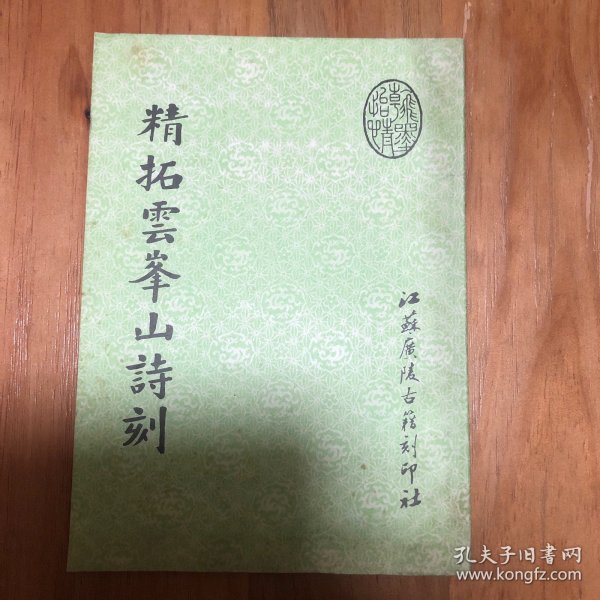 精拓雲峯山詩刻
江蘇廣陵古籍刻印社
孔夫子旧书网
www.kongfz.com